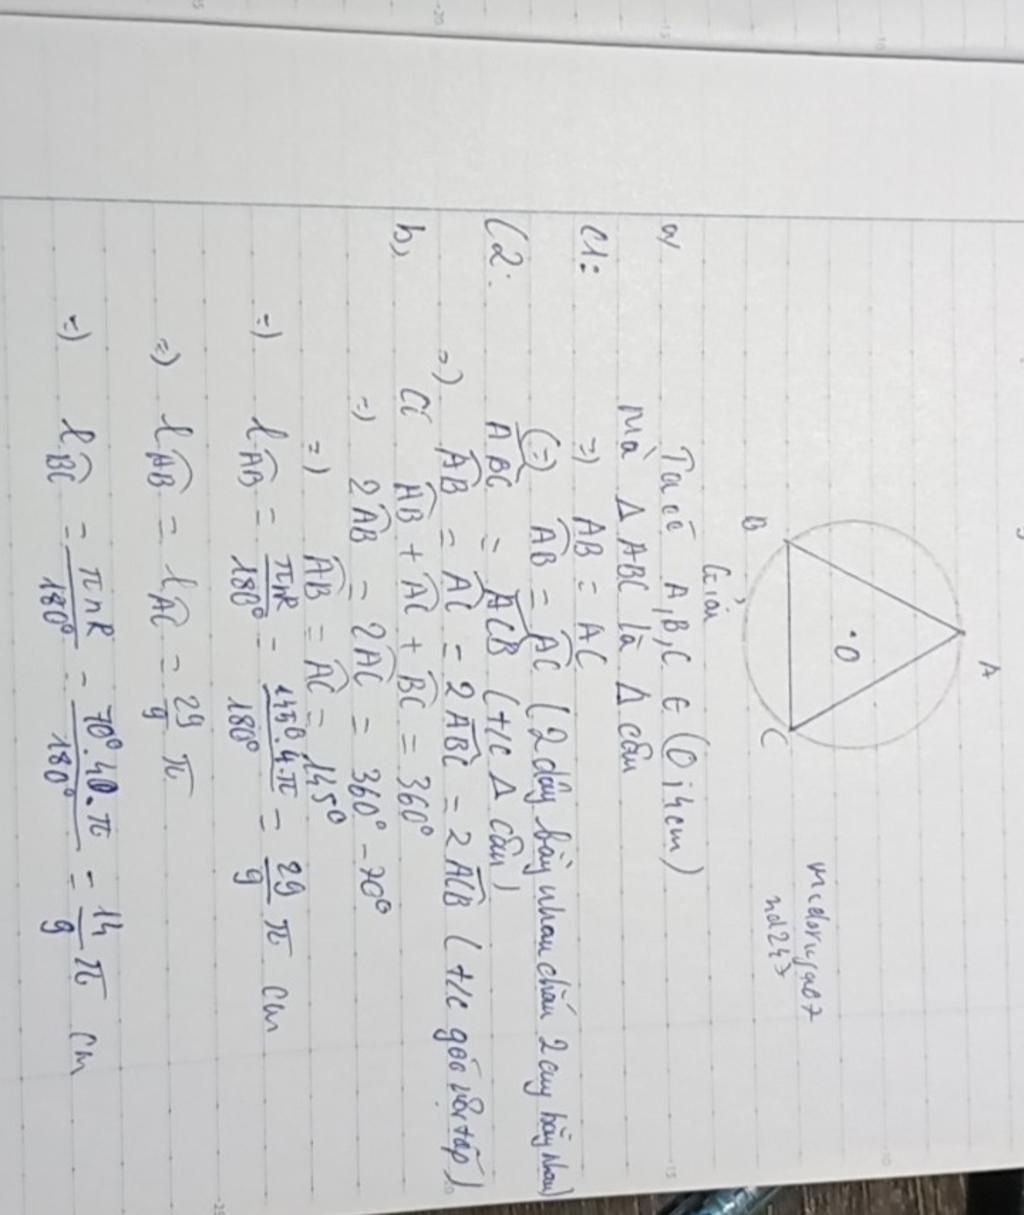 A
B
C
.O
Giải
a/ Ta có A,B,C ∈ (O;4cm)
mà Δ ABC là Δ cân
C1: =) AB = AC
(=) A͡B = A͡C (2 dây bằng nhau chắn 2 cung bằng nhau)
C2: ABC = ACB (t/c Δ cân)
=) A͡B = A͡C = 2ABC = 2ACB (t/c góc nội tiếp)
b, Có A͡B + A͡C + B͡C = 360°
=) 2A͡B = 2A͡C = 360° - 70°
=) A͡B = A͡C = 145°
=) lA͡B = πnR/180° = 145°.4.π/180° = 29/9 π cm
=) lA͡B = lA͡C = 29/9 π
=) lB͡C = πnR/180° = 70°.40.π/180° = 14/9 π cm